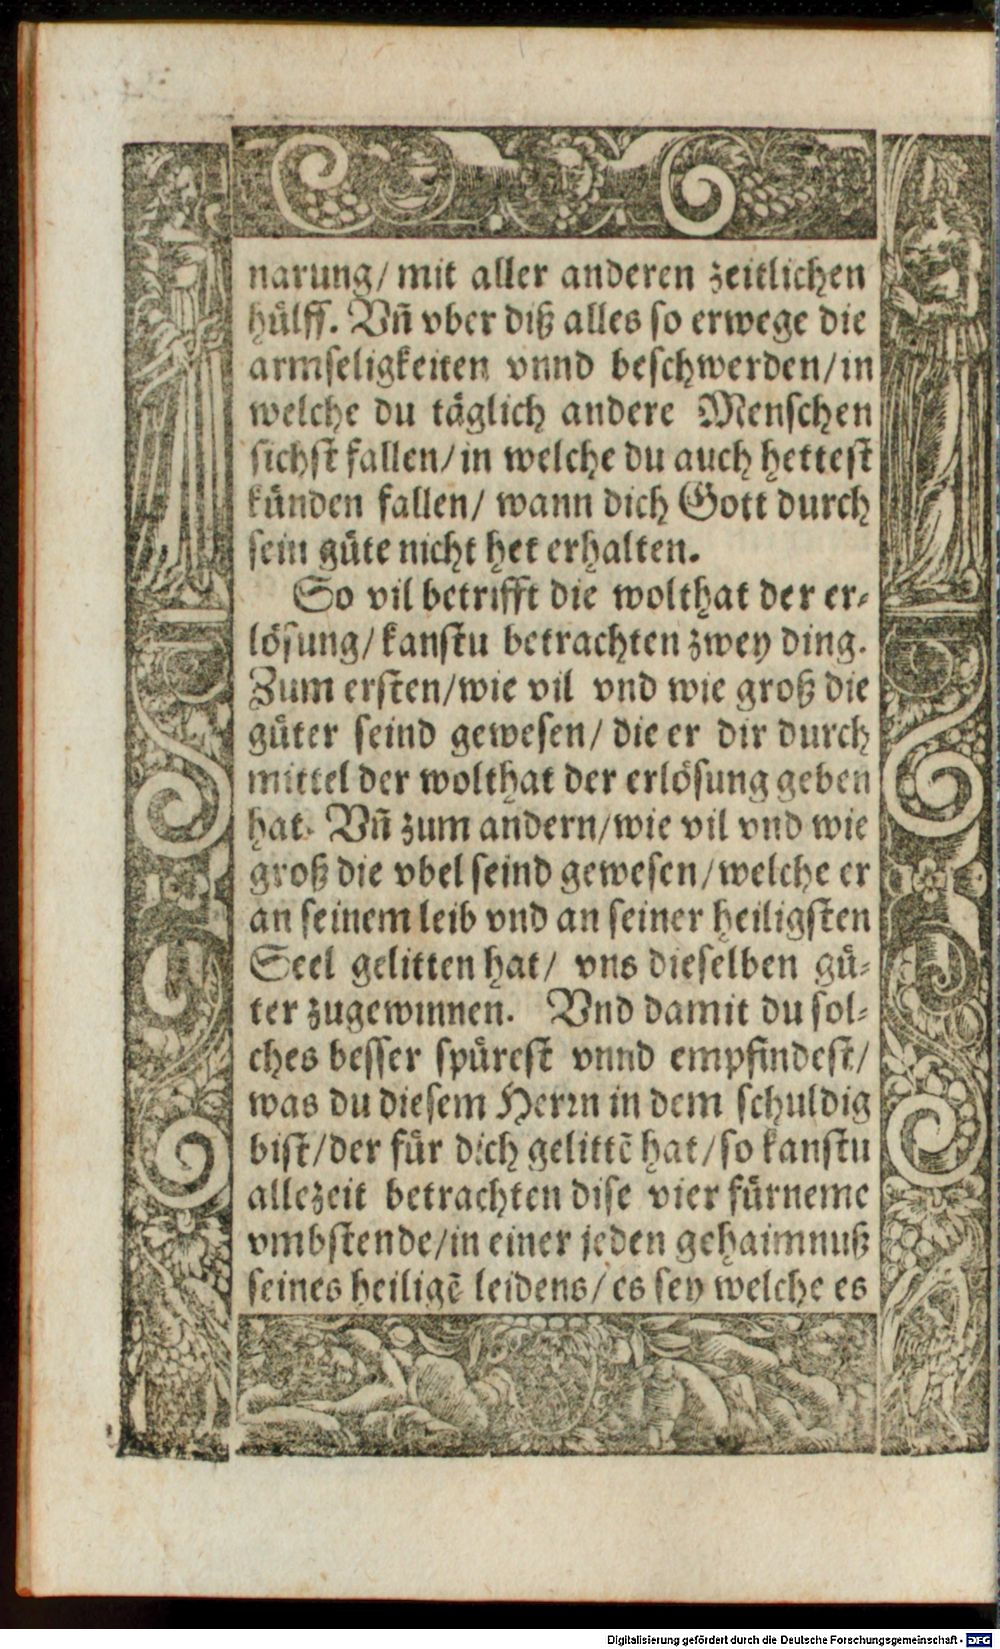 narung/ mit aller anderen zeitlichen
hülff. Vñ vber diß alles so erwege die
armseligkeiten vnnd beschwerden/in
welche du täglich andere Menschen
sichst fallen/in welche du auch hettest
künden fallen/ wann dich Gott durch
sein güte nicht het erhalten.
So vil betrifft die wolthat der er-
lösung/kanstu betrachten zwey ding.
Zum ersten/wie vil vnd wie groß die
güter seind gewesen/ die er dir durch
mittel der wolthat der erlösung geben
hat. Vñ zum andern/wie vil vnd wie
groß die vbel seind gewesen/welche er
an seinem leib vnd an seiner heiligsten
Seel gelitten hat/ vns dieselben gü-
ter zugewinnen. Vnd damit du sol-
ches besser spürest vnnd empfindest/
was du diesem Herrn in dem schuldig
bist/der für dich gelittẽ hat/so kanstu
allezeit betrachten dise vier fürneme
vmbstende/in einer jeden gehaimnuß
seines heiligẽ leidens/es sey welche es
Digitalisierung gefördert durch die Deutsche Forschungsgemeinschaft - DFG